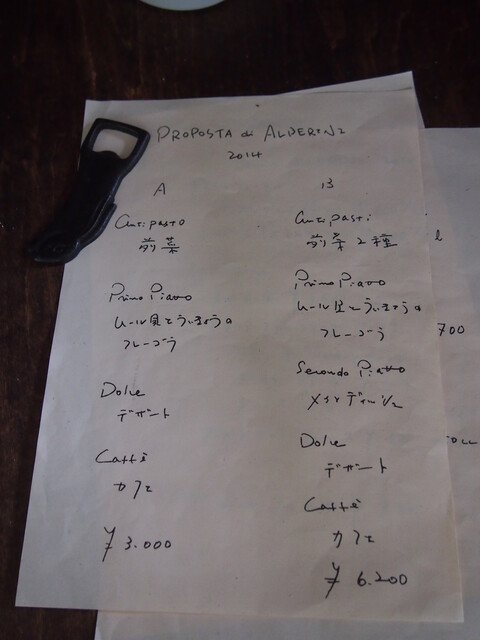 PROPOSTA di ALBERINI
2014
A
Antipasto
前菜
Primo Piatto
ムール貝とういきょうの
フレーゴラ
Dolce
デザート
Caffè
カフェ
¥3.000
B
Antipasti
前菜2種
Primo Piatto
ムール貝とういきょうの
フレーゴラ
Secondo Piatto
メインディッシュ
Dolce
デザート
Caffè
カフェ
¥6.200
700